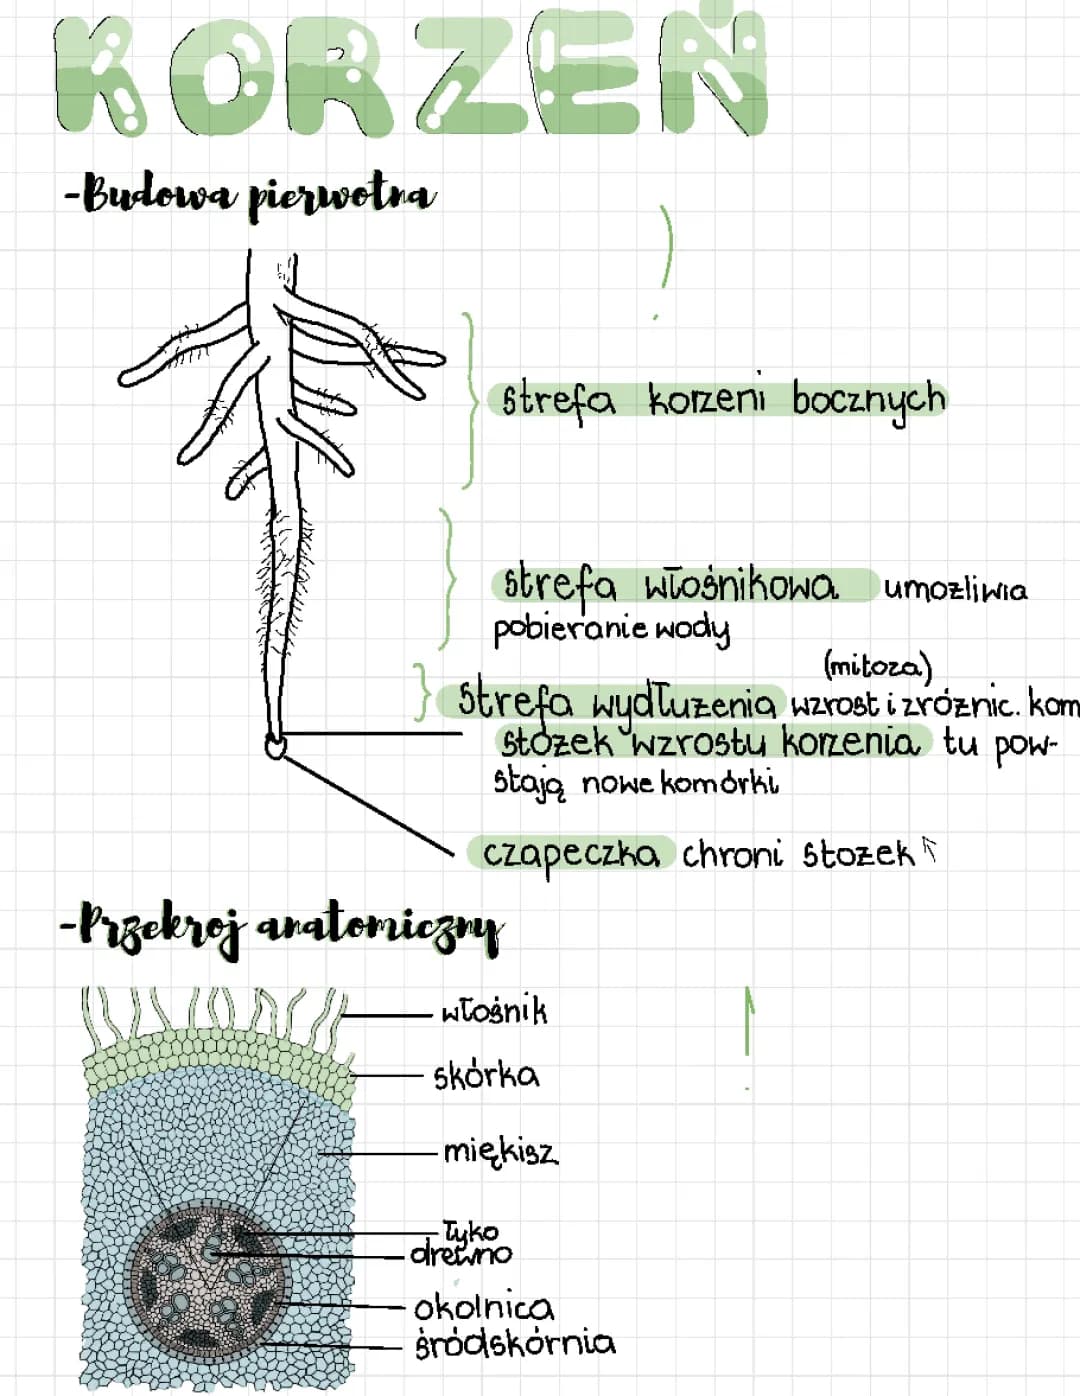 KORZEŃ
-Budowa pierwotna
strefa korzeni bocznych
strefa włośnikowa umożliwia
pobieranie wody
(mitoza)
strefa wydłużenia wzrost i zróżnic. kom
stożek wzrostu korzenia tu pow-
stają nowe komórki
czapeczka chroni stożek
-Przekrój anatomiczny
włośnik
skórka
miękisz
łyko
drewno
okolnica
śródskórnia